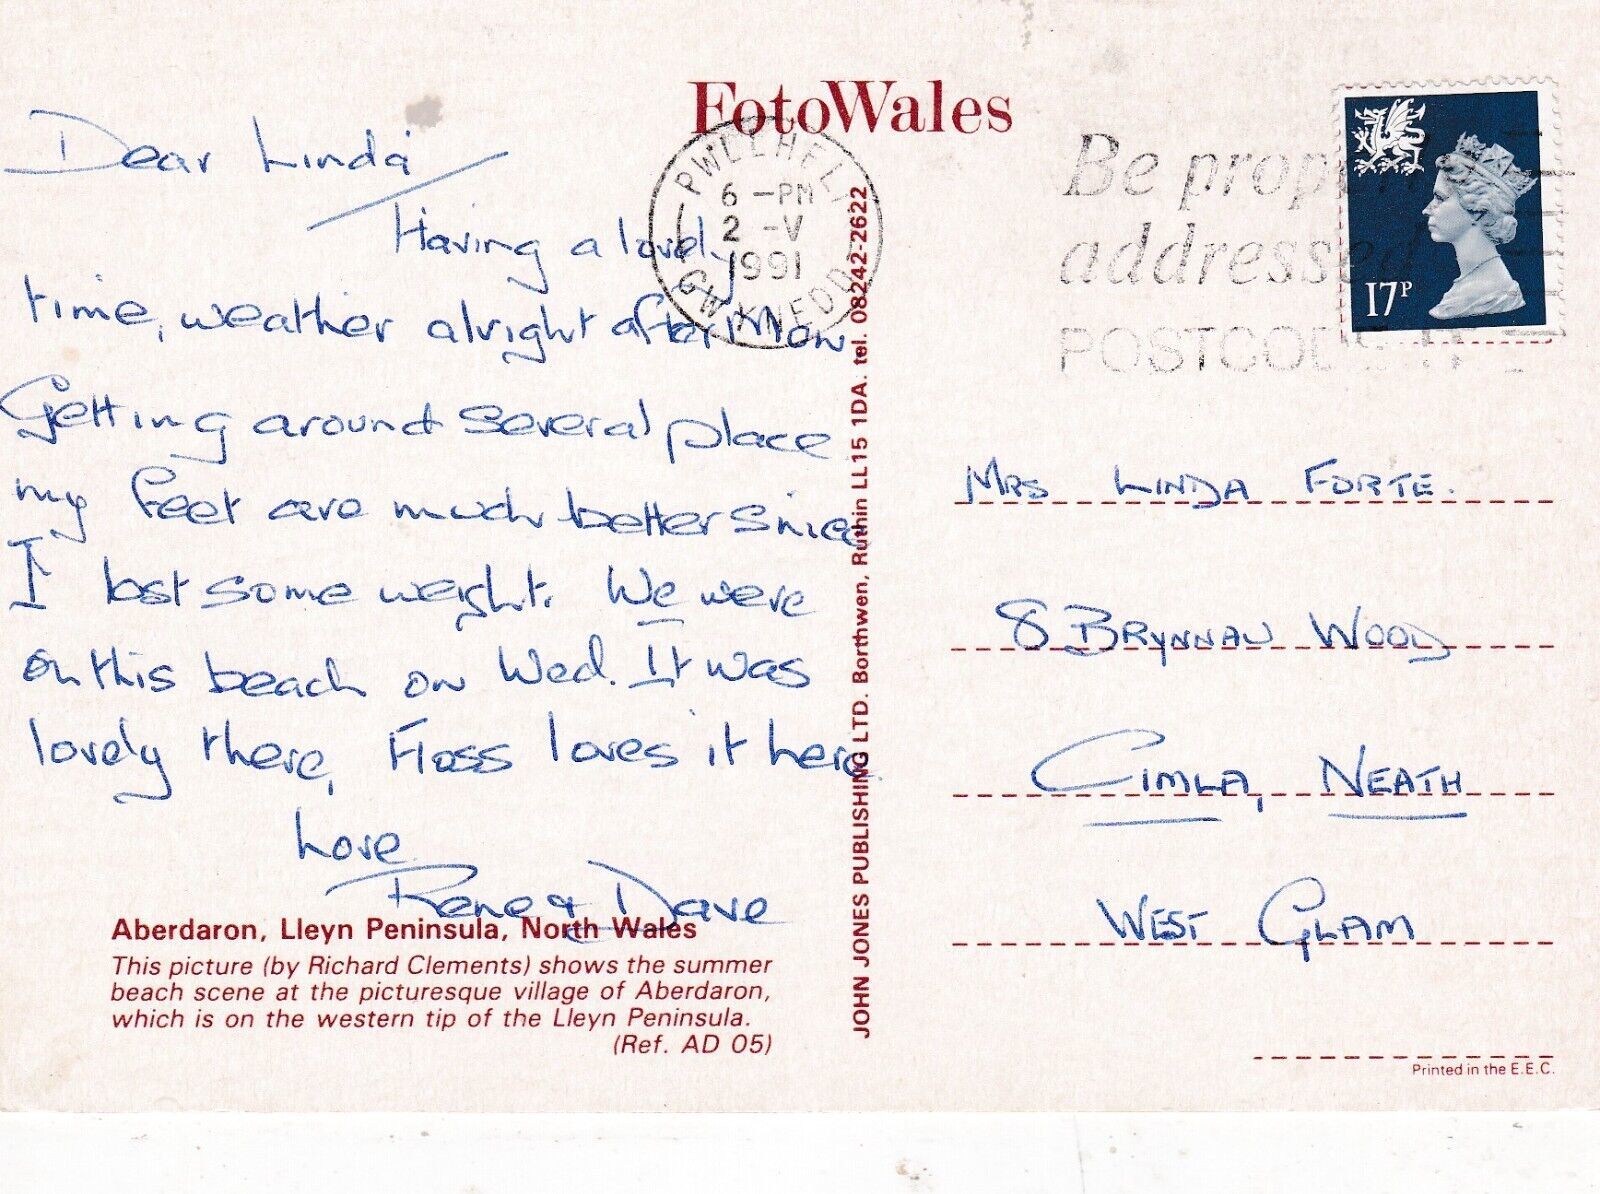 FotoWales
Dear Linda
Having a lovely
time, weather alright after Mon
Getting around several place
my feet are much better since
I lost some weight. We were
on this beach on Wed. It was
lovely there, Floss loves it here.
Love
Rene & Dave
Aberdaron, Lleyn Peninsula, North Wales
This picture (by Richard Clements) shows the summer
beach scene at the picturesque village of Aberdaron,
which is on the western tip of the Lleyn Peninsula.
(Ref. AD 05)
JOHN JONES PUBLISHING LTD. Borthwen, Ruthin LL15 1DA. tel. 08242-2622
PWLLHELI
6 -PM
2 -V
1991
GWYNEDD
Be properly
addressed
POSTCODE IT
17P
MRS LINDA FORTE.
8 BRYNNAU WOOD
CIMLA, NEATH
WEST GLAM
Printed in the E.E.C.